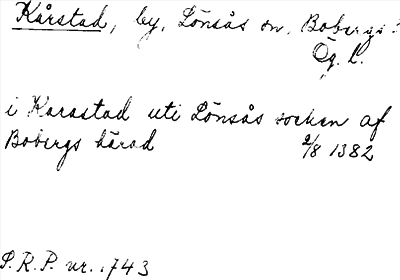 Kårstad, by, Lönsås sn, Bobergs
Ög. L.
i Karastad uti Lönsås socken af
Bobergs härad 2/8 1382
S.R.P. nr. 1743